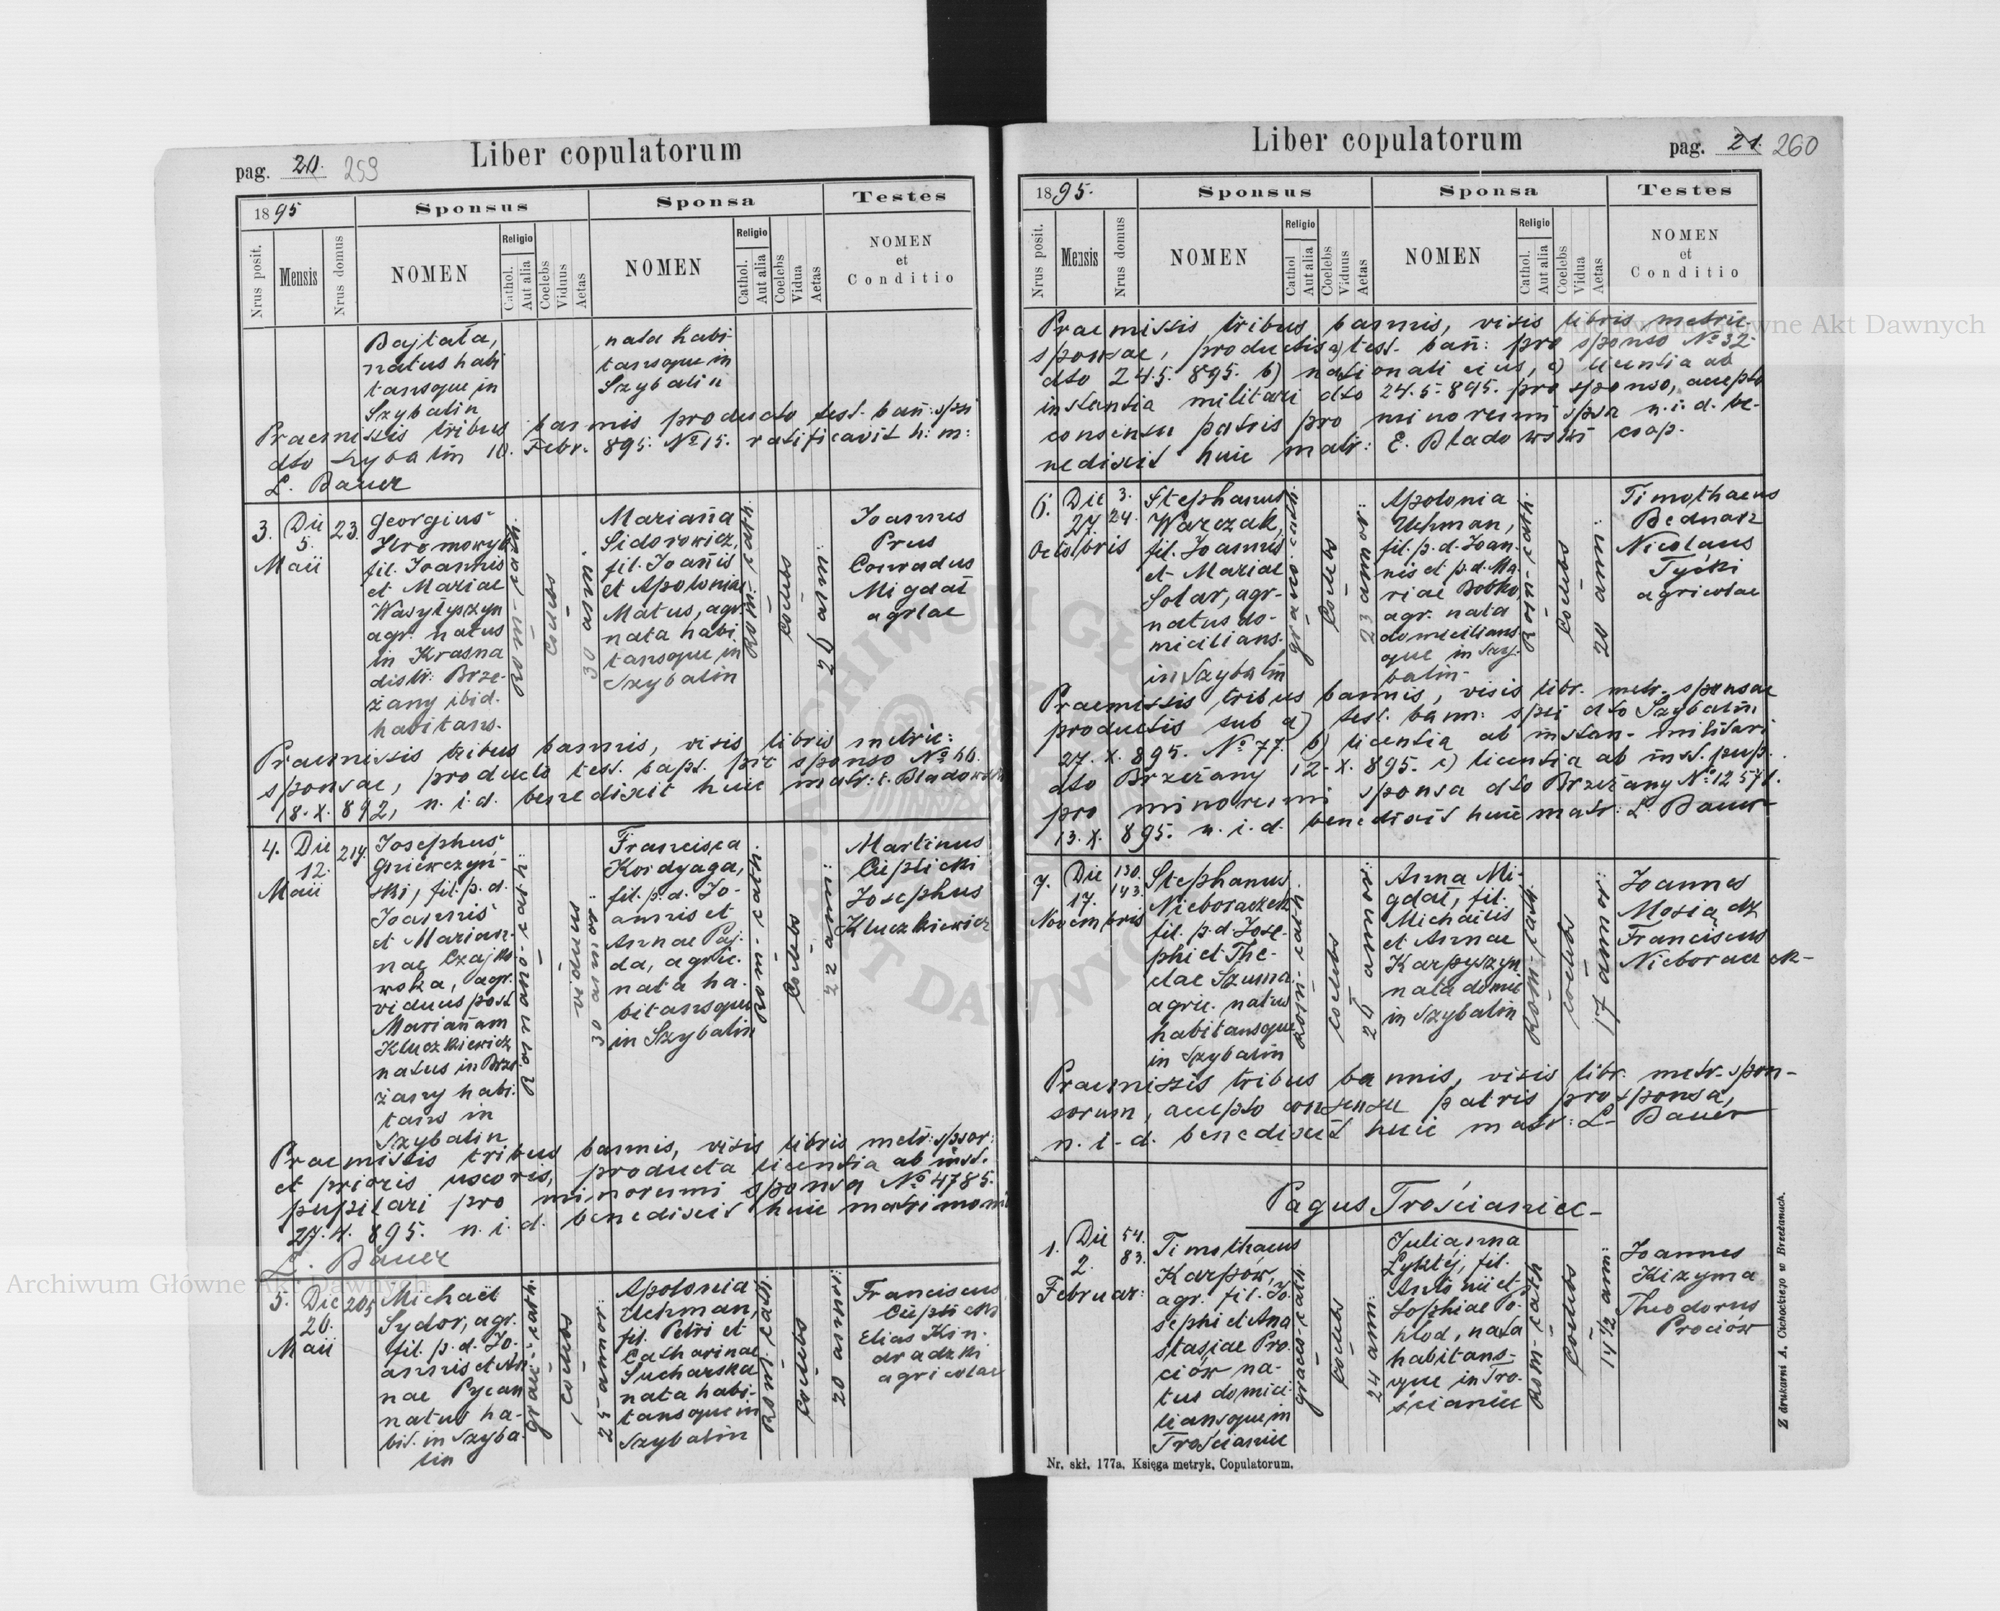 Liber copulatorum
pag. 20. 259
1895
Sponsus
Sponsa
Testes
Nrus posit.
Mensis
Nrus domus
NOMEN
Religio
Cathol.
Aut alia
Coelebs
Viduus
Aetas
NOMEN
Religio
Cathol.
Aut alia
Coelebs
Vidua
Aetas
NOMEN
et
Conditio
Bajtała,
natus habi
tansque in
Szybalin
nata habi-
tansque in
Szybalin
Praemissis tribus bannis producto test. bañ: spsi
dto Szybalin 10. Febr. 895. No 15. ratificavit h: m:
L. Bauer
3.
Die
5.
Maii
23.
Georgius
fil. Joannis
et Mariae
Wasyłyszyn
agr. natus
in Krasna
distr: Brze-
żany ibid.
habitans.
rom-cath.
coelebs
30 ann.
Marianna
Sidorowicz,
fil. Joañis
et Apoloniae
Matus, agr.
nata habi
tansque in
Szybalin
rom-cath.
coelebs
Joannes
Prus
Conradus
Migdał
agrlae
Praemissis tribus bannis, visis libris metric:
sponsae, producto test. bapt. pro sponso No 66.
18.X.892, n.i.d. benedixit huic matr: E. Bladowski
4.
Die
12.
Maii
214.
Josephus
Gniewczyń-
ski, fil. p. d.
Joannis
et Marian-
nae Czajko
wska, agr.
viduus post
Mariañam
Kluczkiewicz
natus in Brze
żany habi
tans in
Szybalin
Romano-cath:
viduus
30 annor:
Francisca
Kordyaga,
fil. p. d. Jo-
annis et
Annae Paj-
da, agric.
nata ha-
bitansque
in Szybalin
rom-cath.
coelebs
22 ann:
Martinus
Cieplicki
Josephus
Kluczkiewicz
Praemissis tribus bannis, visis libris metr: spsor:
et prioris uxoris, producta licentia ab inst.
pupilari pro minorenni sponsa No 4785.
27.4.895. n.i.d. benedixit huic matrimoni
L. Bauer
5.
Die
26.
Maii
205
Michaël
Sydor, agr.
fil. p. d. Jo-
annis et An
nae Pycan
natus ha-
bit. in Szyba-
lin
graec-cath.
coelebs
25 annor:
Apolonia
Uchman,
fil. Petri et
Catharinae
Sucharska
nata habi-
tansque in
Szybalin
rom-cath.
coelebs
20 annor:
Franciscus
Cieplicki
Elias Kin-
dradzki
agricolae
Liber copulatorum
pag. 21. 260
1895.
Sponsus
Sponsa
Testes
Nrus posit.
Mensis
Nrus domus
NOMEN
Religio
Cathol
Aut alia
Coelebs
Viduus
Aetas
NOMEN
Religio
Cathol.
Aut alia
Coelebs
Vidua
Aetas
NOMEN
et
Conditio
Praemissis tribus bannis, visis libris metric.
sponsae, productis a) test. bañ: pro sponso No 32
dto 24.5.895. b) nationali eius, c) licentia ab
instantia militari dto 24.5.895. pro sponso, accepto
consensu patris pro minorenni spsa n.i.d. be-
nedixit huic matr: E. Bladowski coop.
6.
Die
27.
Octobris
3.
24.
Stephanus
Warczak,
fil. Joannis
et Mariae
Solar, agr-
natus do-
micilians.
in Szybalin
graeco-cath.
coelebs
23 annor:
Apolonia
Uchman,
fil. p. d. Joan-
nis et p. d. Ma
riae Bobko,
agr. nata
domicilians
que in Szy-
balin.
rom-cath.
coelebs
20 ann:
Timothaeus
Bednarz
Nicolaus
Tycki
agricolae
Praemissis tribus bannis, visis libr. metr. sponsae
productis sub a) test. bann: spsi dto Szybalin
27.X.895. No 77. b) licentia ab instan. militari
dto Brzeżany 12.X.895. c) licentia ab inst. pup.
pro minorenni sponsa dto Brzeżany No 12571.
13.X.895. n.i.d. benedixit huic matr: L. Bauer
7.
Die
17.
Novembris
130.
143.
Stephanus
Nieboraczek
fil. p. d. Jose-
phi et The-
clae Szuma
agric. natus
habitansque
in Szybalin
rom-cath.
coelebs
24 annor:
Anna Mi-
gdał, fil.
Michaelis
et Annae
Karpyszyn
nata domic
in Szybalin
rom-cath.
coelebs
17 annor:
Joannes
Mosiądz
Franciscus
Nieboraczek
Praemissis tribus bannis, visis libr. metr. spon-
sorum, accepto consensu patris pro sponsa,
n.i.d. benedixit huic matr: L. Bauer
Pagus Trościaniec
1.
Die
2.
Februar:
54.
83.
Timothaeus
Karpów,
agr. fil. Jo-
sephi et Ana
stasiae Pro-
ciów na-
tus domici
liansque in
Trościaniec
graeco-cath.
coelebs
24 ann:
Julianna
fil.
Antonii et
Sophiae Po-
hłod, nata
habitans-
que in Tro-
ścianiec
rom-cath
coelebs
14 1/2 ann:
Joannes
Kizyma
Theodorus
Prociów
Nr. skł. 177a. Księga metryk. Copulatorum.
Z drukarni A. Cichockiego w Brzeżanach.
Archiwum Główne Akt Dawnych
Archiwum Główne Akt Dawnych